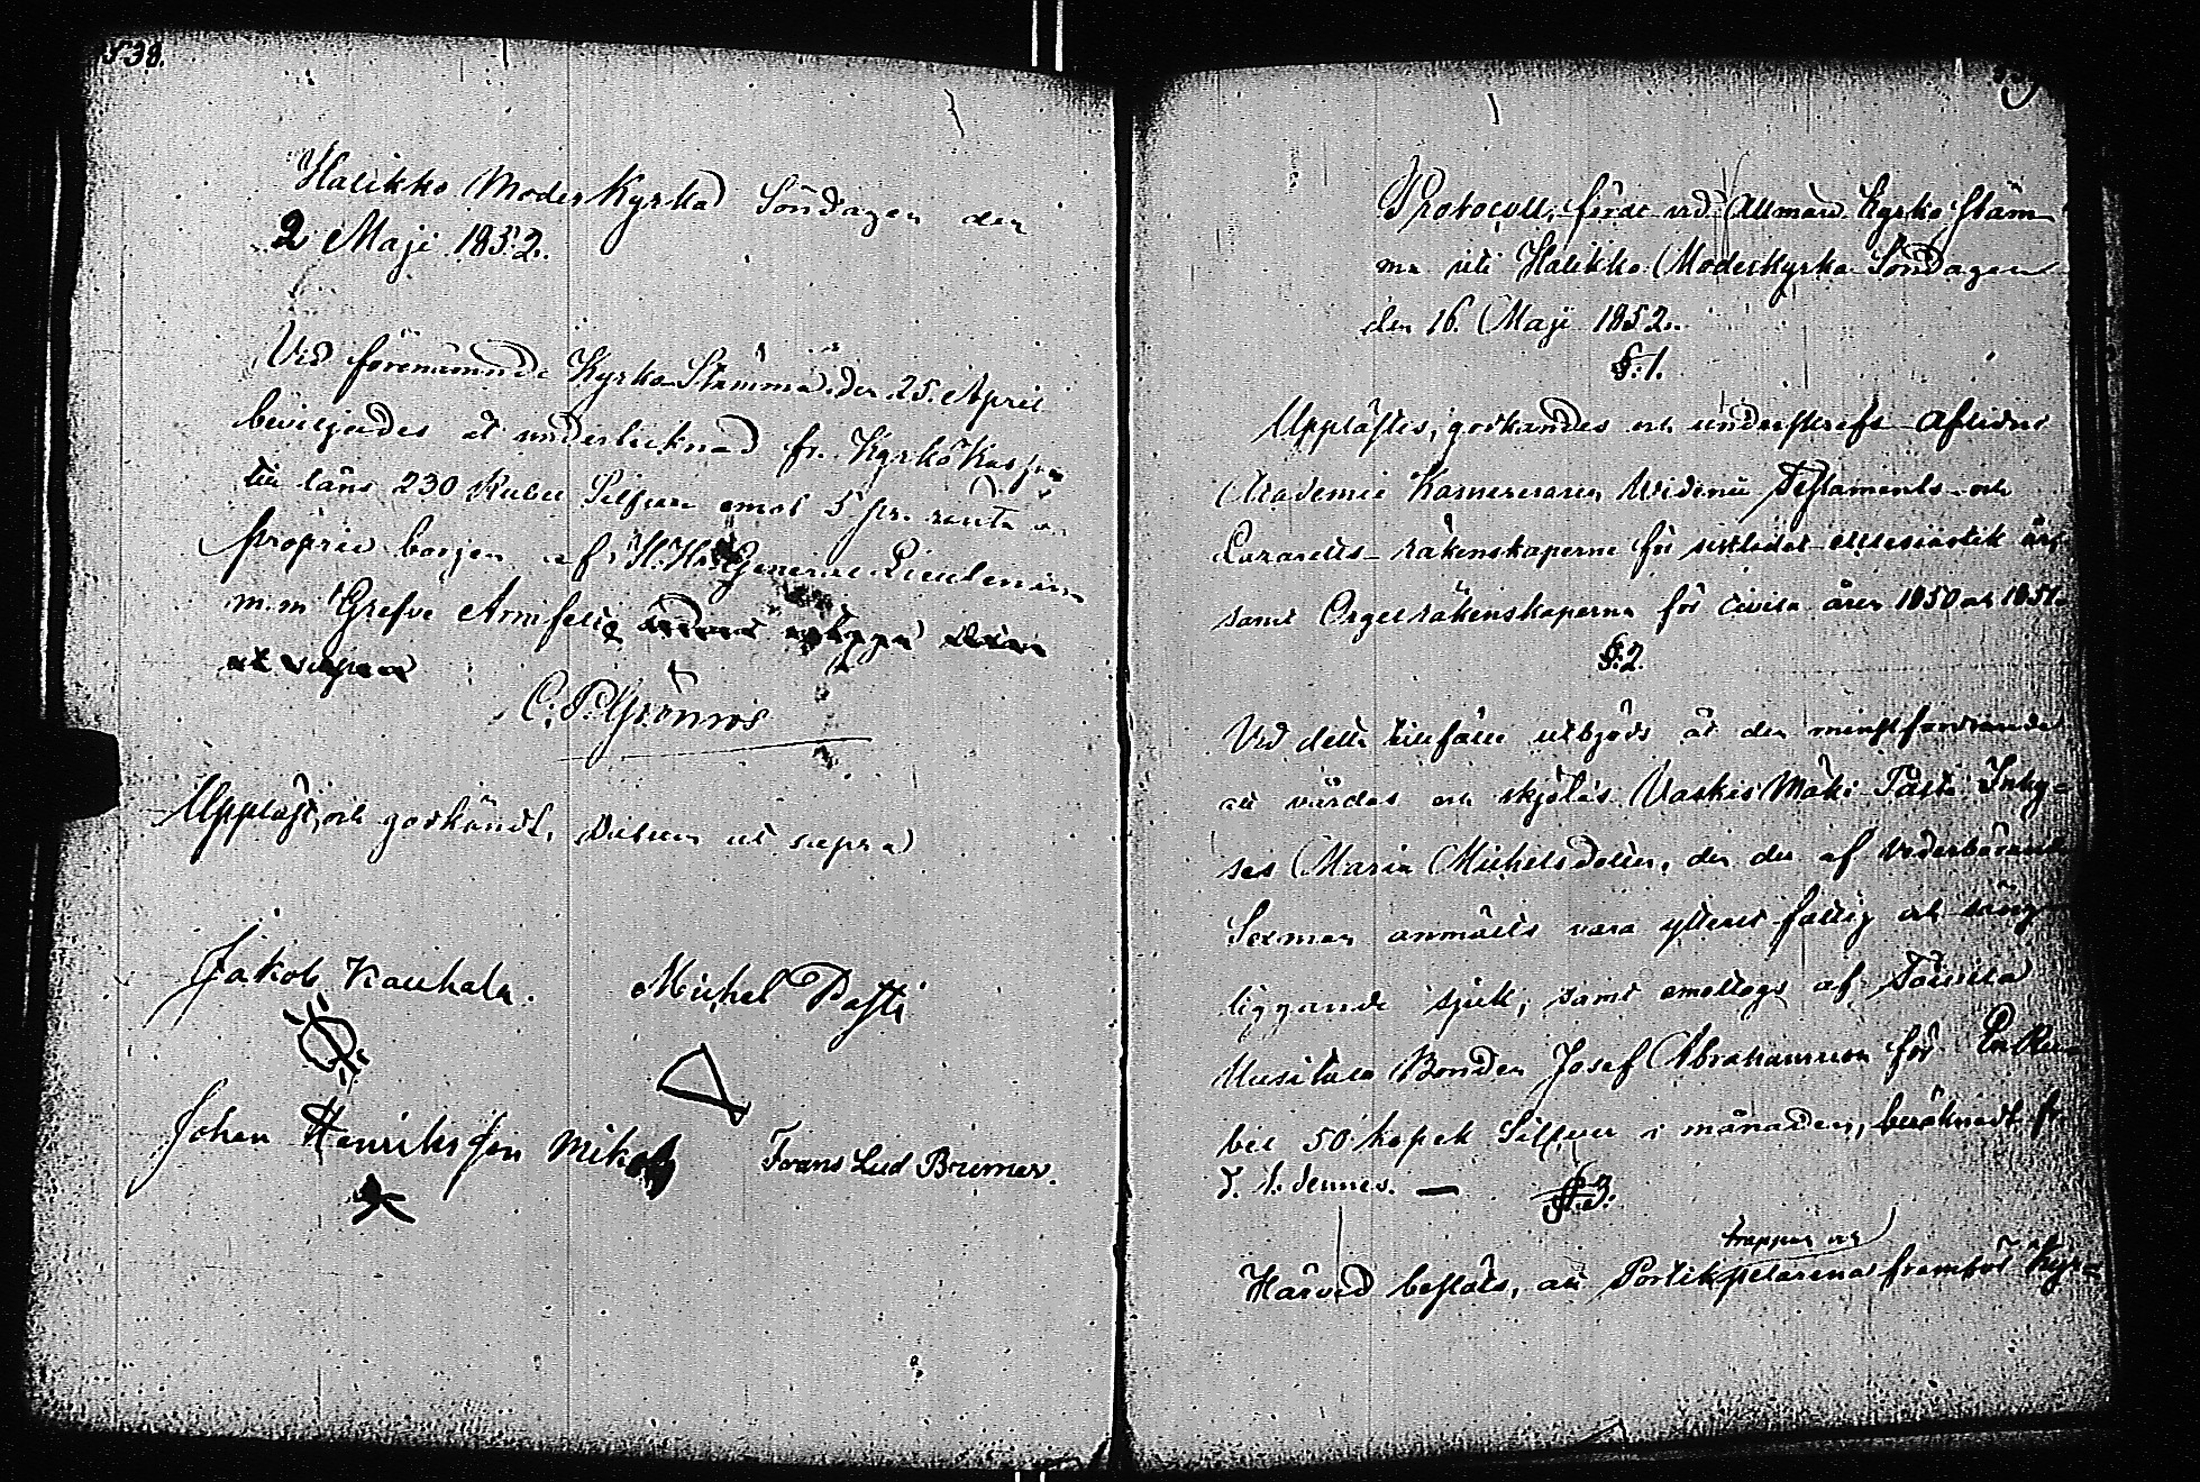 538.
Halikko Moderkyrka Söndagen den
2 Maji 1852.
Vid förenämnde Kyrko Stämma den 25. April
beviljades åt undertecknad fr. Kyrko Kassan
till låns 230 Rubel Silfver emot 5 pr. ränta o.
proprie borgen af H. Hr General Lieutenan
m. m Grefve Armfelt
ut supra
C. P. Grönros
Uppläst, och godkändt, Datum ut supra
Jakob Kaukala. Michel Pasti
Johan Henriksson Mikola Frans Lud Brumer.
Protocoll, fördt vid Allmän Kyrko Stäm
ma uti Halikko Moderkyrka Söndagen
den 16. Maji 1852.
§. 1.
Upplästes, godkändes och underskrefs Aflidne
Academie Kamereraren Widenii Testaments- och
Lazaretts- räkenskaperne för sistledet ecclesiastik år,
samt Orgelräkenskaperna för civila åren 1850 och 1851.
§. 2.
Vid detta tillfälle utbjöds åt den minstfordrande
att vårdas och skjötas Vaskis Mäki Pasti Inhy-
ses Maria Michelsdotter, den der af vederbörande
Sexman anmälts vara ytterst fattig och säng
liggande sjuk, samt emottogs af Toissila
Uusitalo Bonden Josef Abrahamsson för En Ru
bel 50 kopek Silfver i månaden, beräknadt fr.
d. 1. dennes. —
§. 3.
trappan och
Härvid beslöts, att Portikpelarena framför Kyr-